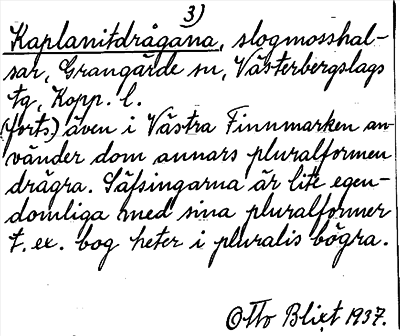 3)
Kaplanitdrågana, slogmosshal-
sar, Grangärde sn, Västerbergslags
tg, Kopp. l.
(forts.) även i Västra Finnmarken an-
vänder dom annars pluralformen
drågra. Säfsingarna är lite egen-
domliga med sina pluralformer
t. ex. bog heter i pluralis bögra.
Otto Blixt 1937.